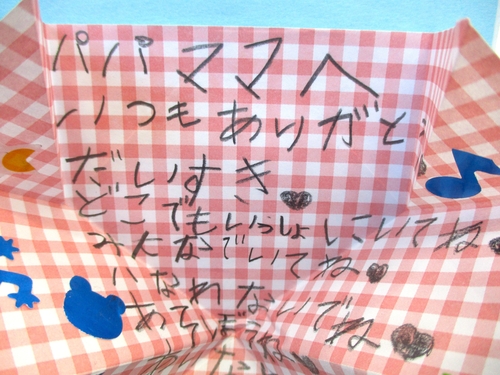 パパママへ
いつもありがと
だいすき
どこでもいっしょにいてね
みんなでいてね
はなれないでね
あそぼうね